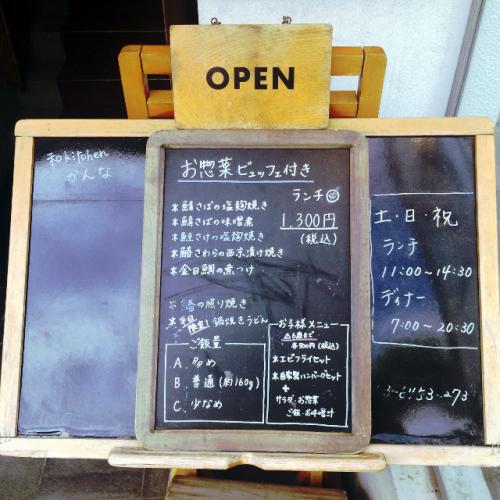 OPEN
和kitchen
かんな
お惣菜ビュッフェ付き
ランチ
＊鯖さばの塩麹焼き
＊鯖さばの味噌煮
＊鮭さけの塩麹焼き
＊鰆さわらの西京漬け焼き
＊金目鯛の煮つけ
1,300円
(税込)
の照り焼き
＊平日限定! 鍋焼きうどん
ご飯量
A. 多め
B. 普通(約160g)
C. 少なめ
お子様メニュー
△6歳まで
各500円(税込)
＊エビフライセット
＊自家製ハンバーグセット
+
サラダ・お惣菜
ご飯・お味噌汁
土・日・祝
ランチ
11:00〜14:30
ディナー
17:00〜20:30